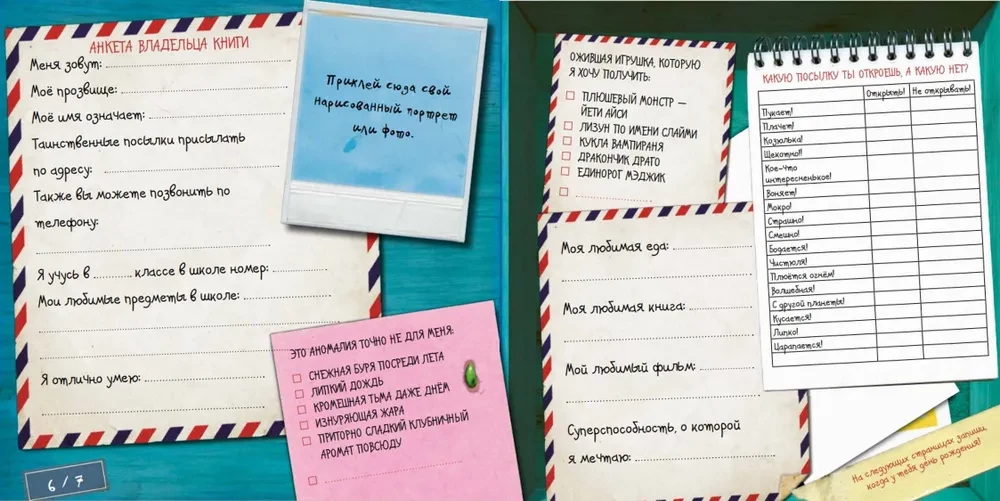 АНКЕТА ВЛАДЕЛЬЦА КНИГИ
Меня зовут:
Моё прозвище:
Моё имя означает:
Таинственные посылки присылать
по адресу:
Также вы можете позвонить по
телефону:
Я учусь в ........ классе в школе номер:
Мои любимые предметы в школе:
Я отлично умею:
Приклей сюда свой
нарисованный портрет
или фото.
ЭТО АНОМАЛИЯ ТОЧНО НЕ ДЛЯ МЕНЯ:
СНЕЖНАЯ БУРЯ ПОСРЕДИ ЛЕТА
ЛИПКИЙ ДОЖДЬ
КРОМЕШНАЯ ТЬМА ДАЖЕ ДНЁМ
ИЗНУРЯЮЩАЯ ЖАРА
ПРИТОРНО СЛАДКИЙ КЛУБНИЧНЫЙ
АРОМАТ ПОВСЮДУ
6 / 7
ОЖИВШАЯ ИГРУШКА, КОТОРУЮ
Я ХОЧУ ПОЛУЧИТЬ:
ПЛЮШЕВЫЙ МОНСТР —
ЙЕТИ АЙСИ
ЛИЗУН ПО ИМЕНИ СЛАЙМИ
КУКЛА ВАМПИРАНЯ
ДРАКОНЧИК ДРАГО
ЕДИНОРОГ МЭДЖИК
Моя любимая еда:
Моя любимая книга:
Мой любимый фильм:
Суперспособность, о которой
я мечтаю:
КАКУЮ ПОСЫЛКУ ТЫ ОТКРОЕШЬ, А КАКУЮ НЕТ?
Открыть! Не открывать!
Пукает!
Плачет!
Козюлька!
Щекотно!
Кое-что
интересненькое!
Воняет!
Мокро!
Страшно!
Смешно!
Бодается!
Чистюля!
Плюётся огнём!
Волшебная!
С другой планеты!
Кусается!
Липко!
Царапается!
На следующих страницах запиши
когда у тебя день рождения!